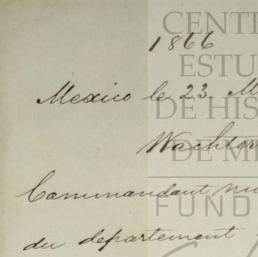 1866
Mexico le 23. M
Commandant
du departement
CENT
ESTU
DE HIS
DE M
FUND